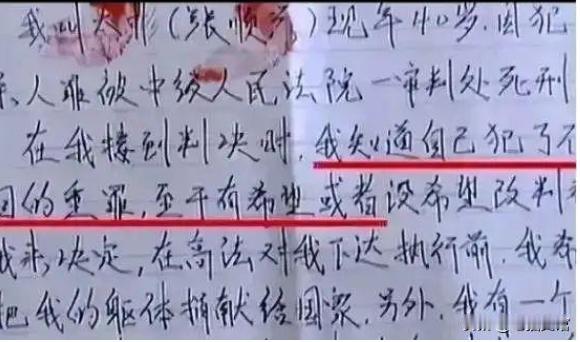 我叫大彬(张顺)现年40岁.因犯
人
被中级人民法院一审判处死刑
在我接到判决时,我知道自己犯了不
的重罪,至于有希望或者没希望改判
我来决定,在高法对我下达执行前,我希
把我的躯体捐献给国家.另外,我有一个